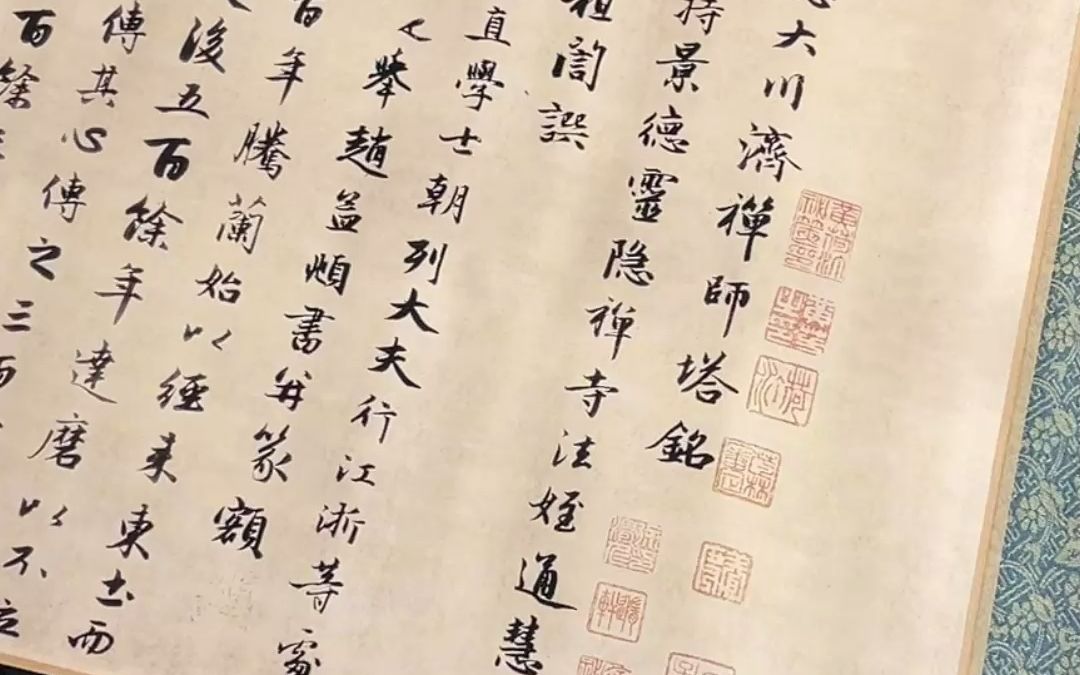 大川濟禪師塔銘
持景德靈隐禅寺法姪通慧
祖誾譔
直學士朝列大夫行江浙等處
舉趙孟頫書并篆額
百年騰蘭始以經来東土而
後五百餘年達磨以不立
傳其心傳之三百
百餘